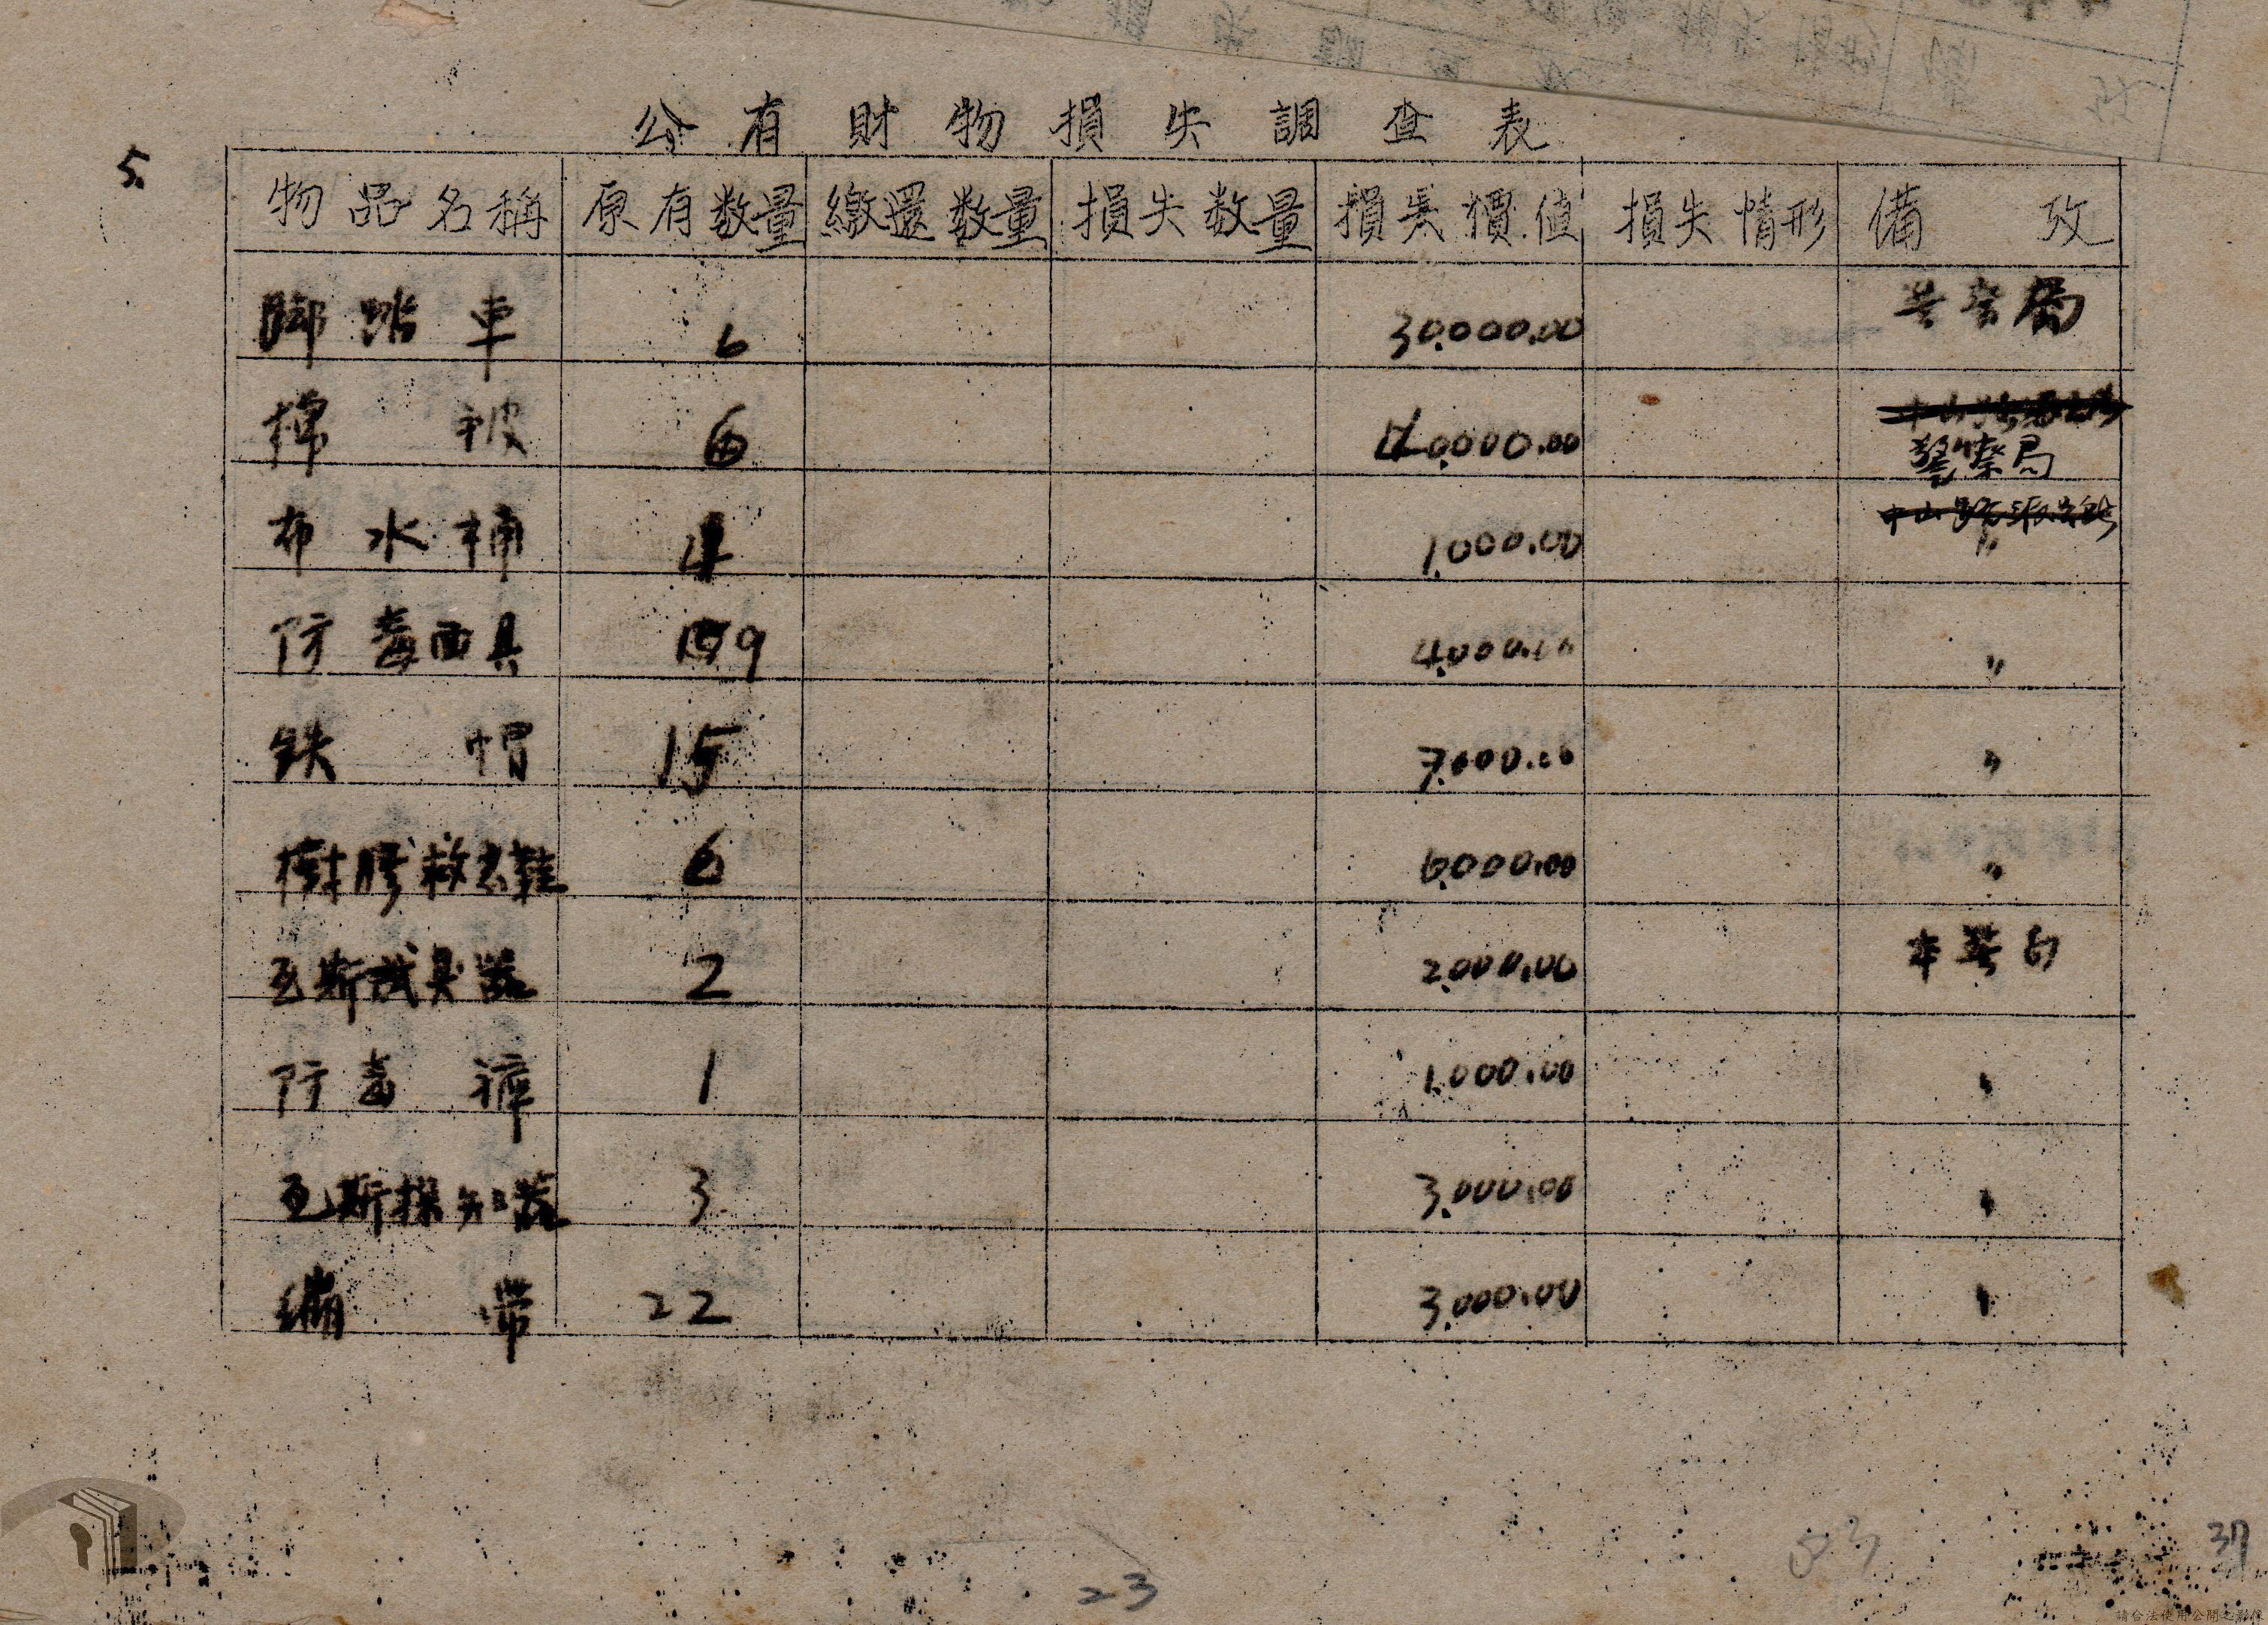 公有財物損失調查表
5.
物品名稱 原有数量 繳還数量 損失数量 損失價值 損失情形 備攷
脚踏車 6 30,000.00 警察局
棉被 6 40,000.00 警察局
布水桶 4 1,000.00 〃
防毒面具 9 4,000.00 〃
鉄帽 15 7,000.00 〃
樹膠救急鞋 6 6,000.00 〃
瓦斯試臭器 2 2,000.00
防毒褲 1 1,000.00 〃
瓦斯探知器 3 3,000.00 〃
繃帶 22 3,000.00 〃
23
53
37
請合法使用公開之影像